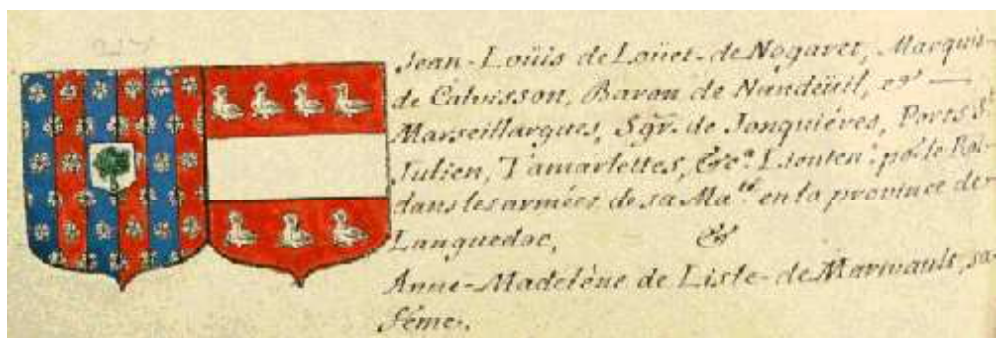 Jean-Loüis de Loüet-de Nogaret, Marquis-
de Calvisson, Baron de Nandeüil, et —
Marseillargues, Sgr. de Jonquiéres, Ports S.t
Julien, Tamarlettes, &c.a Lieuten.t po.r le Roi-
dans les armées de sa Ma.té en la province de
Languedoc, &
Anne-Madelène de Lisle-de Marivault, sa-
féme.